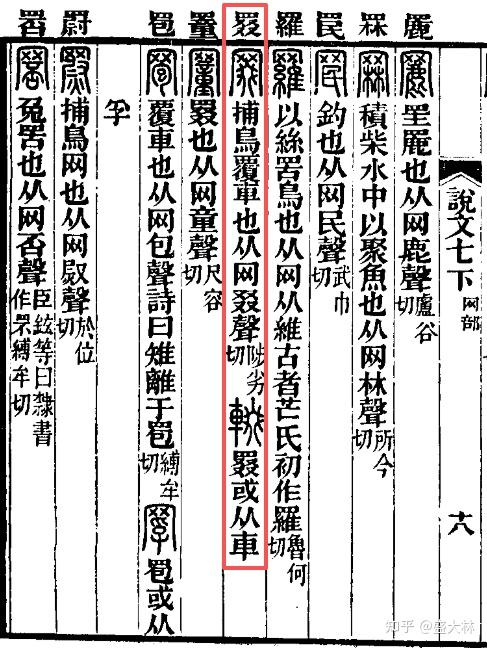 說文七下 网部
十八
䍡 罜䍡也从网鹿聲盧谷切
罧 積柴水中以聚魚也从网林聲所今切
罠 釣也从网民聲武巾切
羅 以絲罟鳥也从网从維古者芒氏初作羅魯何切
罬 捕鳥覆車也从网叕聲陟劣切 輟 罬或从車
罿 罬也从网童聲尺容切
䍖 覆車也从网包聲詩曰雉離于䍖縛牟切 䍖或从
孚
罻 捕鳥网也从网㷉聲於位切
兔罟也从网否聲臣鉉等曰隸書作罘縛牟切
知乎 @盛大林